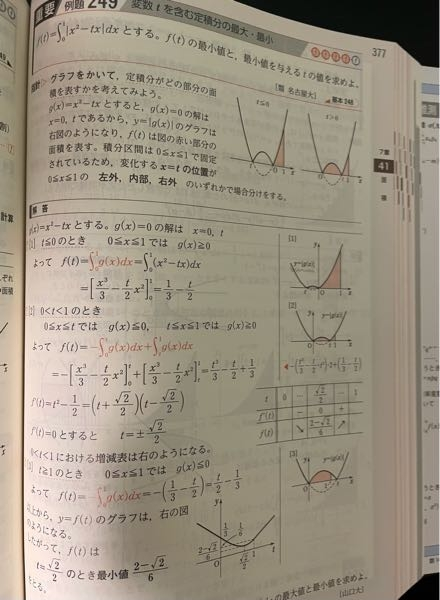 重要 例題 249 変数 t を含む定積分の最大・最小
377
f(t)=∫₀¹|x²−tx|dx とする。f(t) の最小値と，最小値を与える t の値を求めよ。
[類 名古屋大] 基本 248
指針 グラフをかいて，定積分がどの部分の面
積を表すかを考えてみよう。
g(x)=x²−tx とすると，g(x)=0 の解は
x=0，t であるから，y=|g(x)| のグラフは
右図のようになり，f(t) は図の赤い部分の
面積を表す。積分区間は 0≦x≦1 で固定
されているため，変化する x=t の位置が
0≦x≦1 の 左外，内部，右外 のいずれかで場合分けをする。
t≦0
t>0
7章
41
面
積
解答
g(x)=x²−tx とする。g(x)=0 の解は x=0, t
[1] t≦0 のとき 0≦x≦1 では g(x)≧0
よって f(t)=∫₀¹g(x)dx=∫₀¹(x²−tx)dx
=[x³/3−t/2 x²]₀¹=1/3−t/2
[2] 0<t<1 のとき
0≦x≦t では g(x)≦0, t≦x≦1 では g(x)≧0
よって f(t)=−∫₀ᵗg(x)dx+∫ₜ¹g(x)dx
=−[x³/3−t/2 x²]₀ᵗ+[x³/3−t/2 x²]ₜ¹=t³/3−t/2+1/3
f'(t)=t²−1/2=(t+√2/2)(t−√2/2)
f'(t)=0 とすると t=±√2/2
0<t<1 における増減表は右のようになる。
[3] t≧1 のとき 0≦x≦1 では g(x)≦0
よって f(t)=−∫₀¹g(x)dx=−(1/3−t/2)=t/2−1/3
以上から，y=f(t) のグラフは，右の図
のようになる。
したがって，f(t) は
t=√2/2 のとき最小値 (2−√2)/6
をとる。
[1]
y=|g(x)|
[2]
y=|g(x)|
t 0 … √2/2 … 1
f'(t) − 0 +
f(t) ↘ (2−√2)/6 ↗
[3]
y=|g(x)|
の最大値と最小値を求めよ。
[山口大]